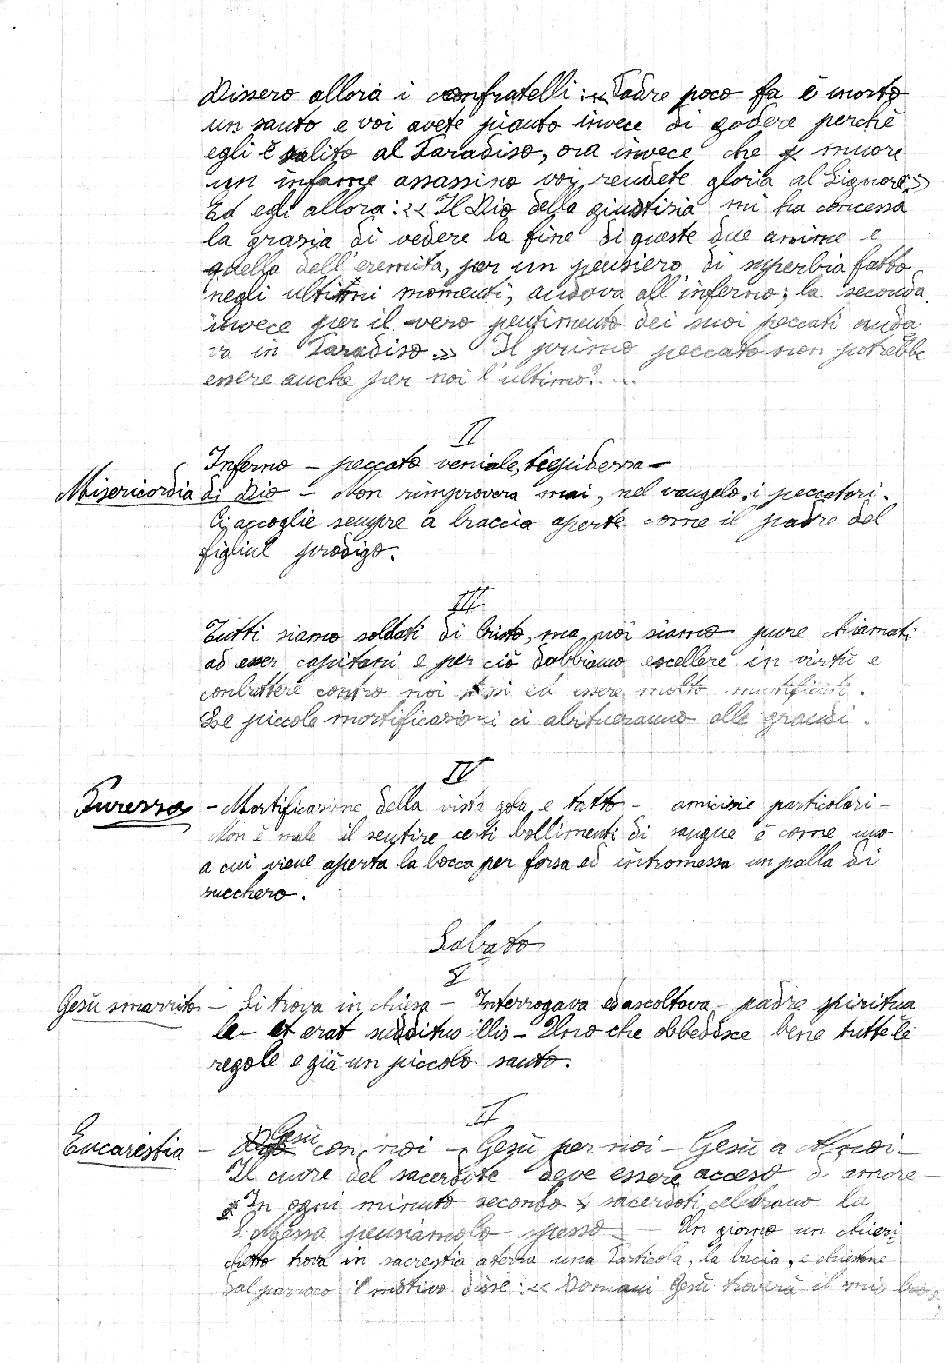 Dissero allora i confratelli: << Padre poco fa è morto
un santo e voi avete pianto invece di godere perchè
egli è salito al Paradiso, ora invece che muore
un infame assassino voi rendete gloria al Signore? >>
Ed egli allora: << Il Dio della giustizia mi ha concessa
la grazia di vedere la fine di queste due anime e
quella dell'eremita, per un pensiero di superbia fatto
negli ultimi momenti, andava all'inferno; la seconda
invece per il vero pentimento dei suoi peccati anda
va in Paradiso. >> Il primo peccato non potrebbe
essere anche per noi l'ultimo?....
II
Inferno - peccato veniale, tiepidezza -
Misericordia di Dio - Non rimprovera mai, nel vangelo, i peccatori.
Ci accoglie sempre a braccia aperte come il padre del
figliul prodigo.
III
Tutti siamo soldati di Cristo, ma noi siamo pure chiamati
ad esser capitani e per ciò dobbiamo eccellere in virtù e
combattere contro noi stessi ed essere molto mortificati.
Le piccole mortificazioni ci abitueranno alle grandi.
IV
Purezza - Mortificazione della vista gola, e tatto - amicizie particolari -
Non è male il sentire certi bollimenti di sangue è come uno
a cui viene aperta la bocca per forza ed intromessa un palla di
zucchero.
Sabato
I
Gesù smarrito - Si trova in chiesa - Interrogava ed ascoltava - padre spiritua
le - et erat subditus illis - Uno che obbedisce bene tutte le
regole e già un piccolo santo.
II
Eucarestia - Gesù con noi - Gesù per noi - Gesù a noi -
Il cuore del sacerdote deve essere acceso di amore -
In ogni minuto secondo 4 sacerdoti celebrano la
S. Messa pensiamolo spesso - Un giorno un chieri
chetto trova in sacrestia aterra una Particola, la bacia, e chiestone
dal parroco il motivo disse: << Domani Gesù troverà il mio bacio